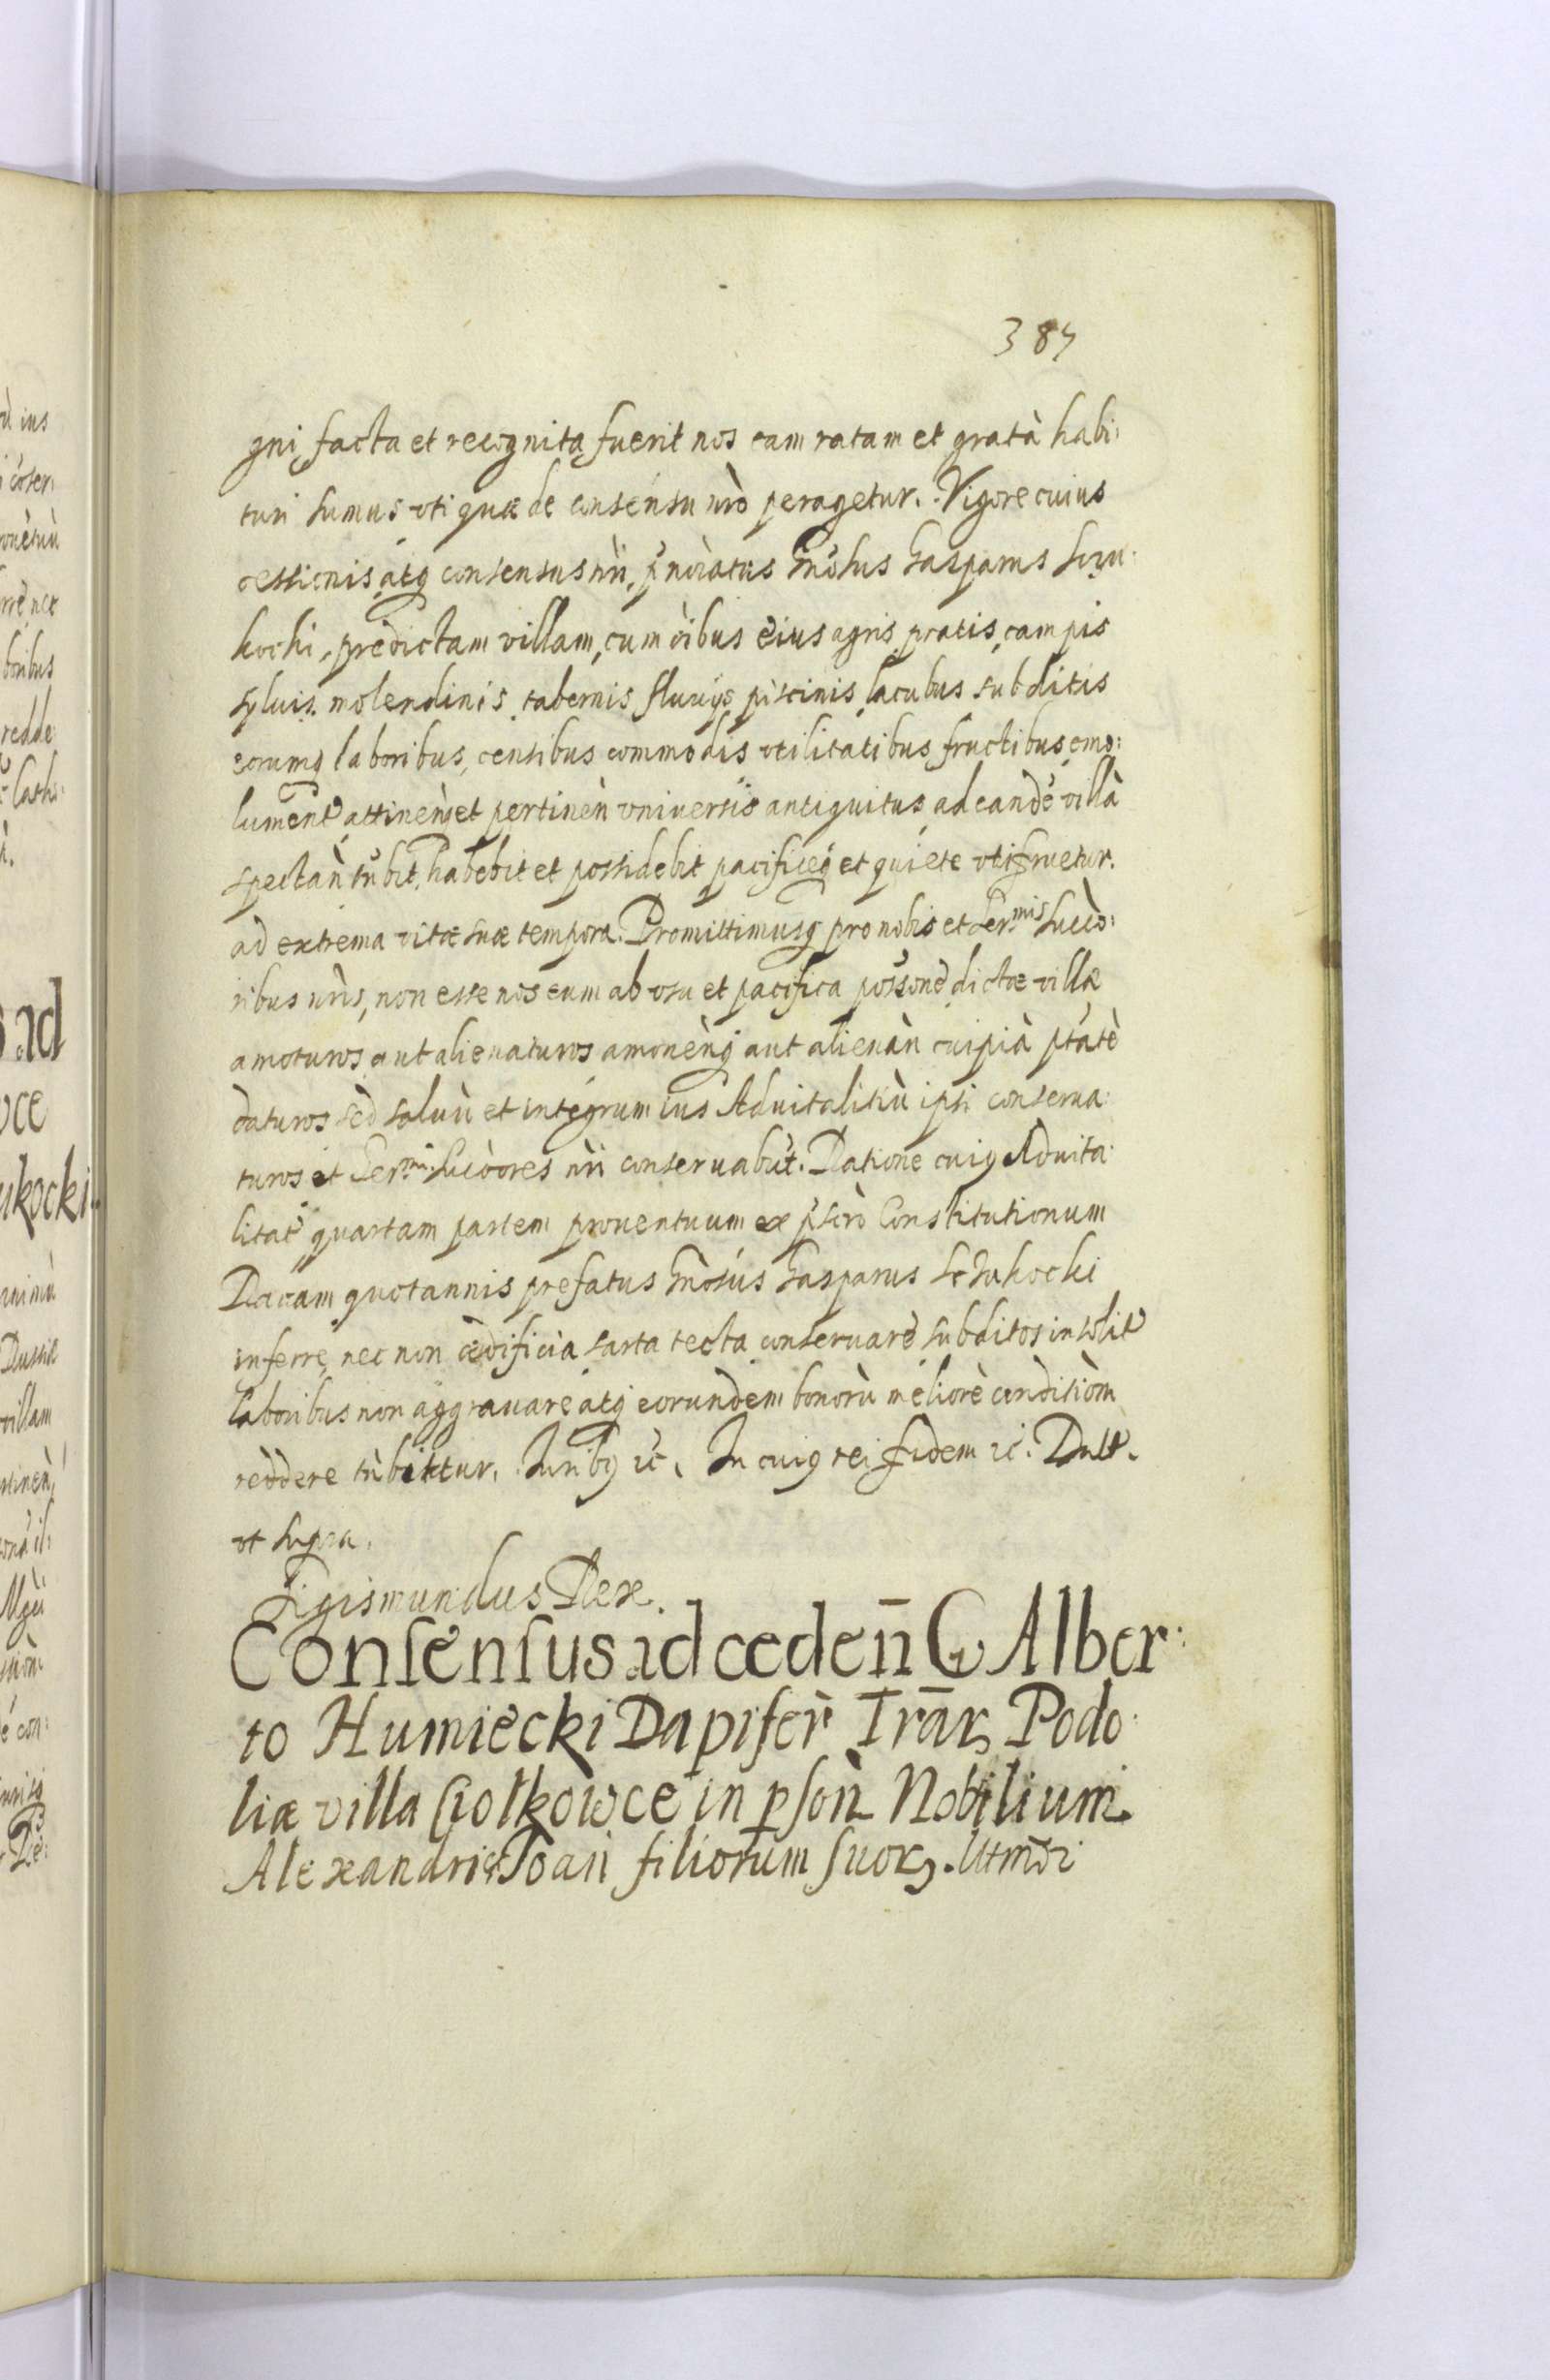 384
gni facta et recognita fuerit nos eam ratam et gratà habi:
turi sumus vti quæ de consensu nrò peragetur. Vigore cuius
cessionis atq consensus nri, pnòiatus Gnòsus Gasparus Szu:
kocki, prędictam villam, cum òibus eius agris, pratis, campis
syluis, molendinis, tabernis, fluuijs piscinis, lacubus subditis
eorumq laboribus, censibus commodis vtilitatibus, fructibus, emo:
lument attinèn et pertinèn vniuersis antiquitus ad eandè villà
spectàn tùbit, habebit et possidebit pacificeq et quiete vtifruetur.
ad extrema vitæ suæ tempora. Promittimusq pro nobis et Ser.mis Succò:
ribus nrìs, non esse nos eum ab vsu et pacifica possone dictæ villæ
amoturos, aut alienaturos amonènq aut alienàn cuipià ptatè
daturos sed saluù et integrum ius Aduitalitiù ipsi conserua:
turos et Ser.mi Sucòores nri conseruabùt. Ratione cuiq Aduita:
litat quartam partem prouentuum ex pscrò Constitutionum
Rauam quotannis prefatus Gnòsus Gasparus Szukocki
inferre, nec non ædificia sarta tecta conseruare subditos insolit
laboribus non aggrauare atq eorundem bonorù meliorè conditiòm
reddere tùbittur. Juribq ec. In cuiq rei fidem ec. Datt.
vt supra.
Sigismundus Rex.
Consensus ad cedeñ G Alber:
to Humiecki Dapifer Trar Podo:
liæ villa Ciołkowce in pson Nobilium
Alexandri & Joan filiorum suor. Utmdi